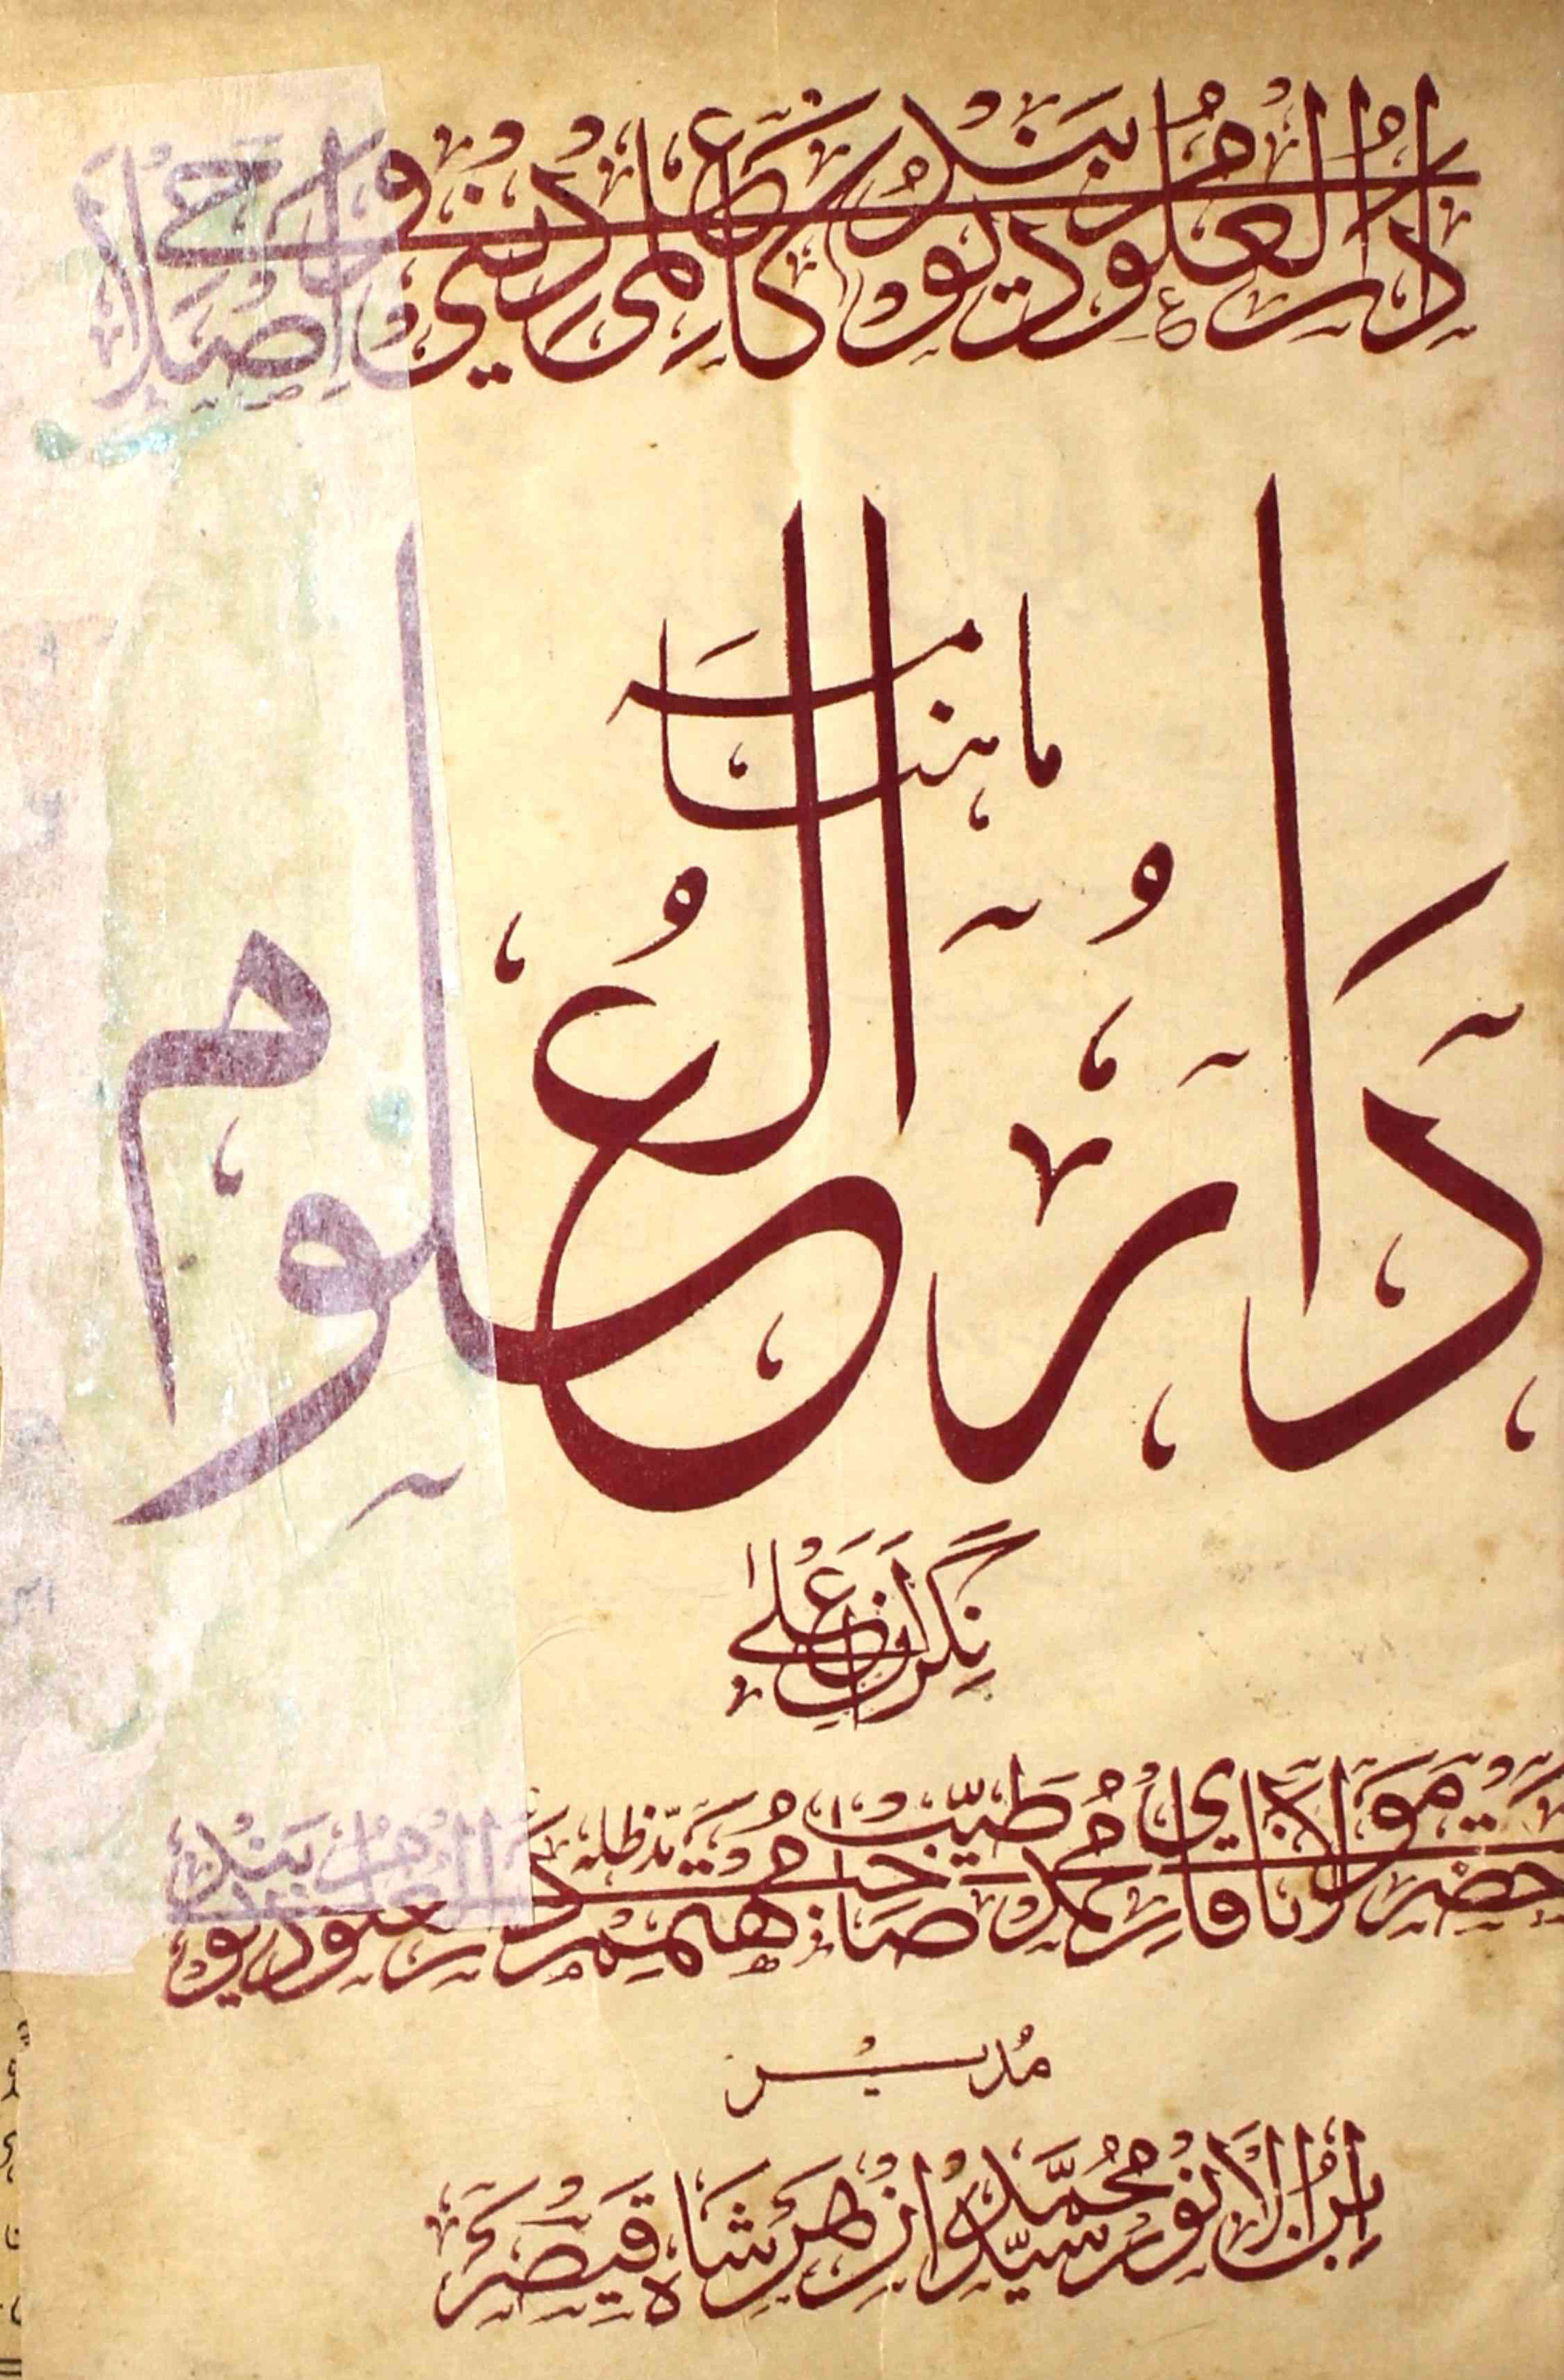 دارالعلوم دیوبند کا علمی دینی و اصلاحی
ماہنامہ
دارالعلوم
نگران اعلیٰ
حضرت مولانا قاری محمد طیب صاحب مدظلہ مہتمم دارالعلوم دیوبند
مدیر
ابن الانور سید محمد ازہر شاہ قیصر